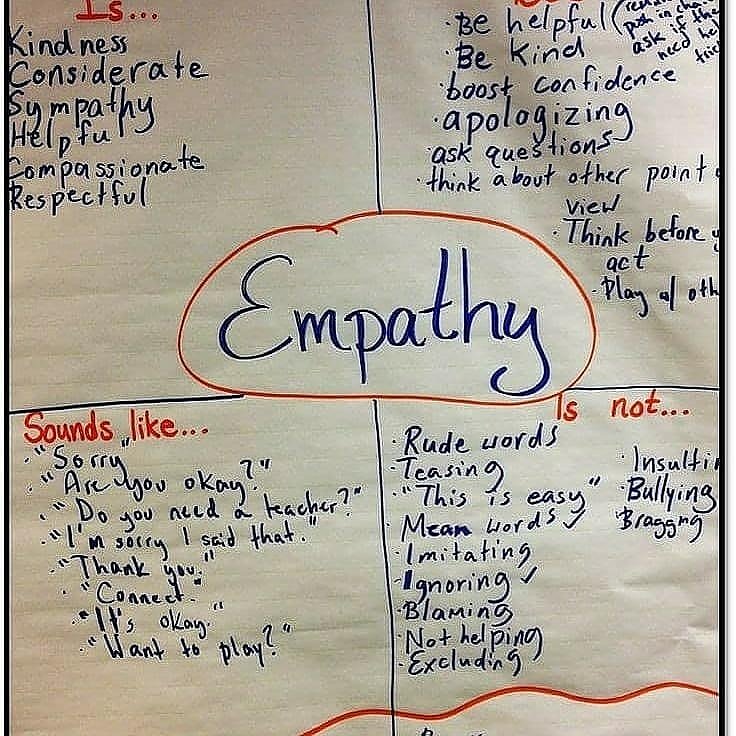 Is...
Kindness
Considerate
Sympathy
Helpful
Compassionate
Respectful
· Be helpful (
push in cha
ask if the
need hel
· Be kind
· boost confidence
· apologizing
· ask questions
· think about other point
view
· Think before y
act
· Play w/ oth
Empathy
Sounds like...
· "Sorry"
· "Are you okay?"
· "Do you need a teacher?"
· "I'm sorry I said that."
· "Thank you."
· "Connect."
· "It's okay."
· "Want to play?"
Is not...
· Rude words
· Teasing
· "This is easy"
· Mean words ✓
· Imitating
· Ignoring ✓
· Blaming
· Not helping
· Excluding
· Insultin
· Bullying
· Braggng